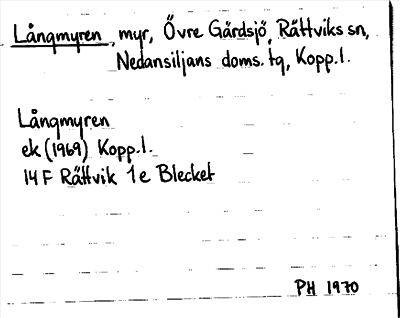 Långmyren, myr, Övre Gärdsjö, Rättviks sn,
Nedansiljans doms. tq, Kopp.l.
Långmyren
ek (1969) Kopp.l.
14 F Rättvik 1e Blecket
PH 1970